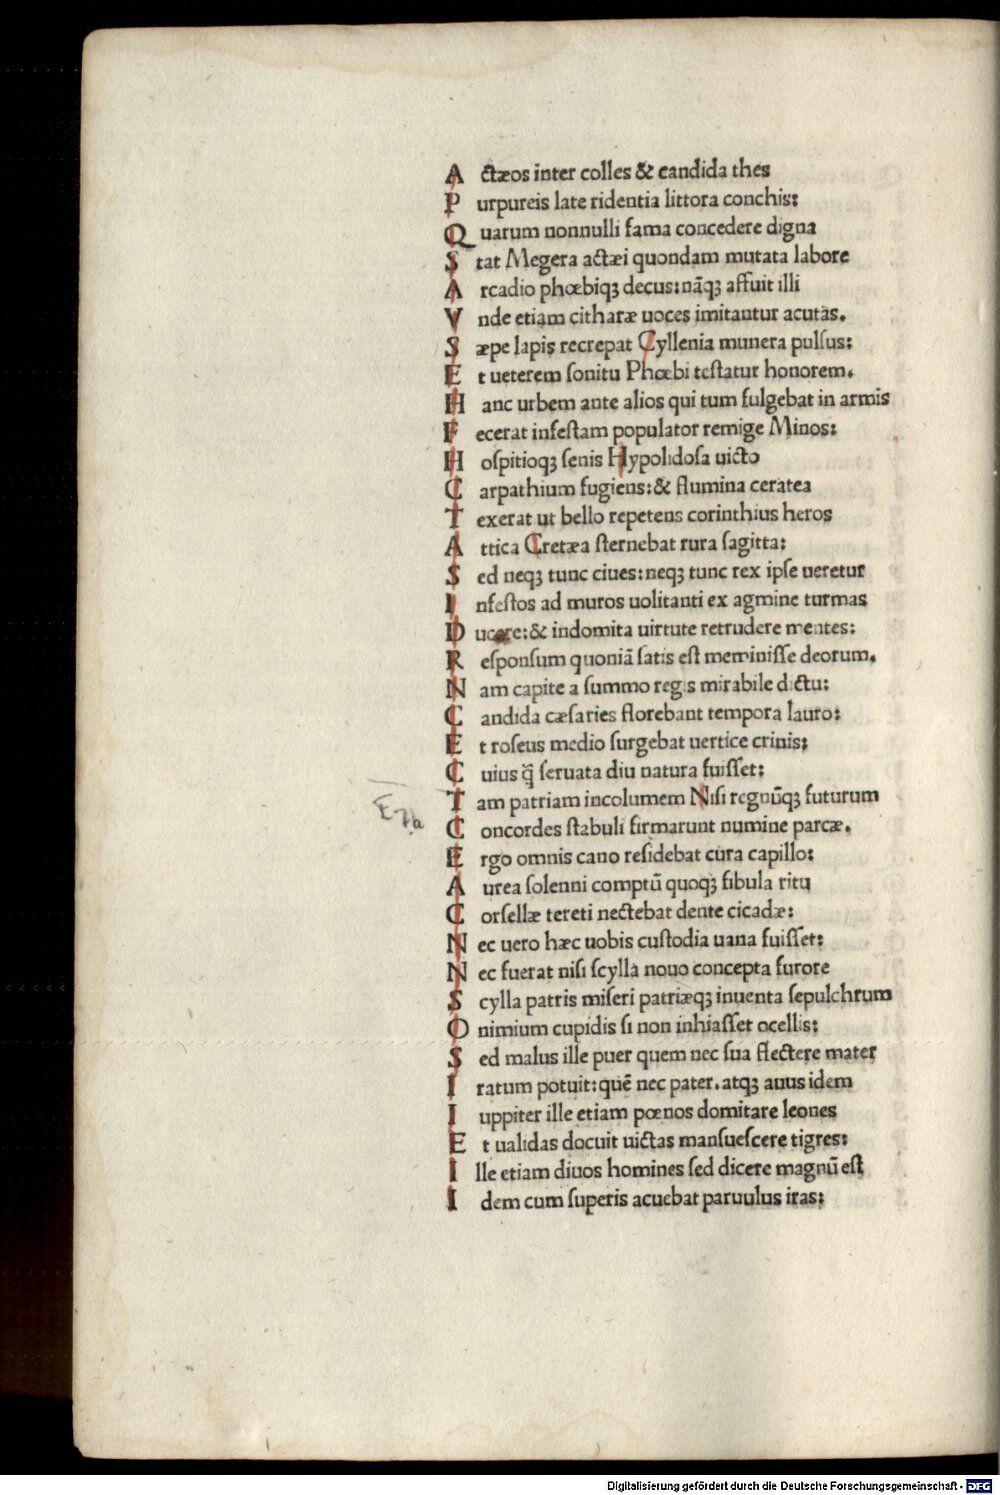 A ctæos inter colles & candida thes
P urpureis late ridentia littora conchis:
Q uarum nonnulli fama concedere digna
S tat Megera actæi quondam mutata labore
A rcadio phœbiqꝫ decus: nãqꝫ affuit illi
V nde etiam citharæ uoces imitantur acutas.
S æpe lapis recrepat Cyllenia munera pulſus:
E t ueterem ſonitu Phœbi teſtatur honorem.
H anc urbem ante alios qui tum fulgebat in armis
F ecerat infeſtam populator remige Minos:
H oſpitioqꝫ ſenis Hypolidoſa uicto
C arpathium fugiens: & flumina ceratea
T exerat ut bello repetens corinthius heros
A ttica Cretæa ſternebat rura ſagitta:
S ed neqꝫ tunc ciues: neqꝫ tunc rex ipſe ueretur
I nfeſtos ad muros uolitanti ex agmine turmas
D ucere: & indomita uirtute retrudere mentes:
R eſponſum quoniã ſatis eſt meminiſſe deorum.
N am capite a ſummo regis mirabile dictu:
C andida cæſaries florebant tempora lauro:
E t roſeus medio ſurgebat uertice crinis:
C uius q̃ ſeruata diu natura fuiſſet:
T am patriam incolumem Niſi regnũqꝫ futurum
C oncordes ſtabuli firmarunt numine parcæ.
E rgo omnis cano reſidebat cura capillo:
A urea ſolenni comptũ quoqꝫ fibula ritu
C orſellæ tereti nectebat dente cicadæ:
N ec uero hæc uobis cuſtodia uana fuiſſet:
N ec fuerat niſi ſcylla nouo concepta furore
S cylla patris miſeri patriæqꝫ inuenta ſepulchrum
O nimium cupidis ſi non inhiaſſet ocellis:
S ed malus ille puer quem nec ſua flectere mater
I ratum potuit: quẽ nec pater. atqꝫ auus idem
I uppiter ille etiam pœnos domitare leones
E t ualidas docuit uictas manſueſcere tigres:
I lle etiam diuos homines ſed dicere magnũ eſt
I dem cum ſuperis acuebat paruulus iras:
Digitalisierung gefördert durch die Deutsche Forschungsgemeinschaft - DFG